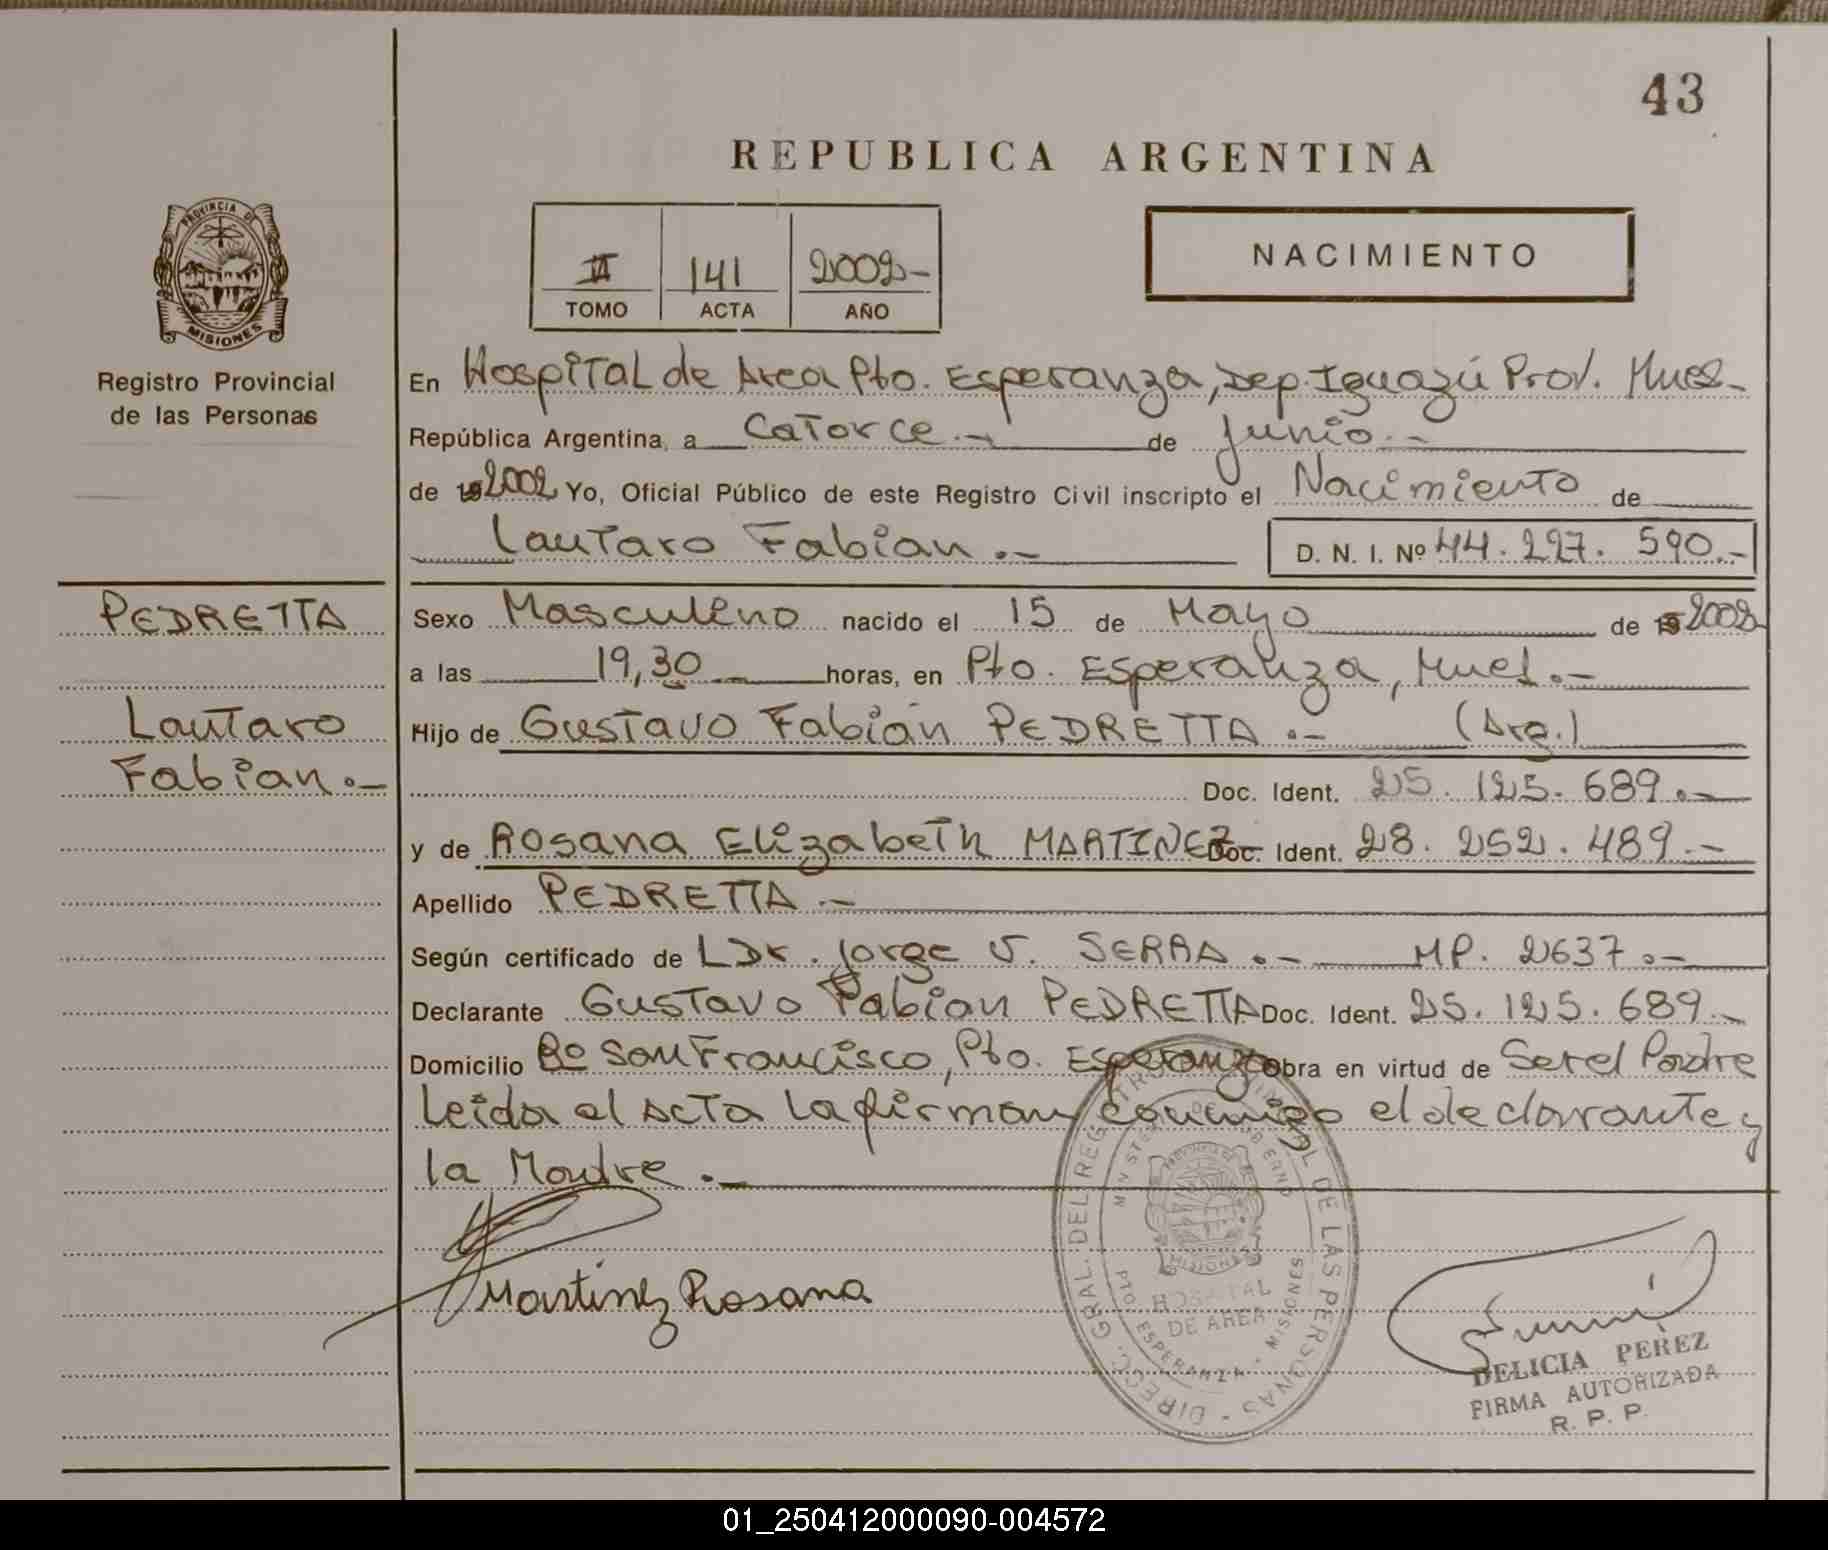 43
REPUBLICA ARGENTINA
II 141 2002-
TOMO ACTA AÑO
NACIMIENTO
PROVINCIA DE
MISIONES
Registro Provincial
de las Personas
En Hospital de Area Pto. Esperanza, Dep. Iguazú Prov. Mnes-
República Argentina, a Catorce.- de junio.-
de 192002 Yo, Oficial Público de este Registro Civil inscripto el Nacimiento de
Lautaro Fabian.- D. N. I. Nº 44.227.590.-
PEDRETTA
Lautaro
Fabian.-
Sexo Masculino nacido el 15 de Mayo de 192002
a las 19,30 horas, en Pto. Esperanza, Mnes.-
Hijo de Gustavo Fabián PEDRETTA.- (Arg.)
Doc. Ident. 25.125.689.-
y de Rosana Elizabeth MARTINEZ Doc. Ident. 28.252.489.-
Apellido PEDRETTA.-
Según certificado de Dr. Jorge V. SERRA.- MP. 2637.-
Declarante Gustavo Fabian PEDRETTA Doc. Ident. 25.125.689.-
Domicilio Bº San Francisco, Pto. Esperanza Obra en virtud de Ser el Padre
Leida el Acta la firman conmigo el declarante y
la Madre.-
Martinez Rosana
DIRECC. GRAL. DEL REGISTRO DE LAS PERSONAS
MINISTERIO DE GOBIERNO
MISIONES
HOSPITAL
DE AREA
PTO ESPERANZA - MISIONES
DELICIA PEREZ
FIRMA AUTORIZADA
R. P. P.
01_250412000090-004572